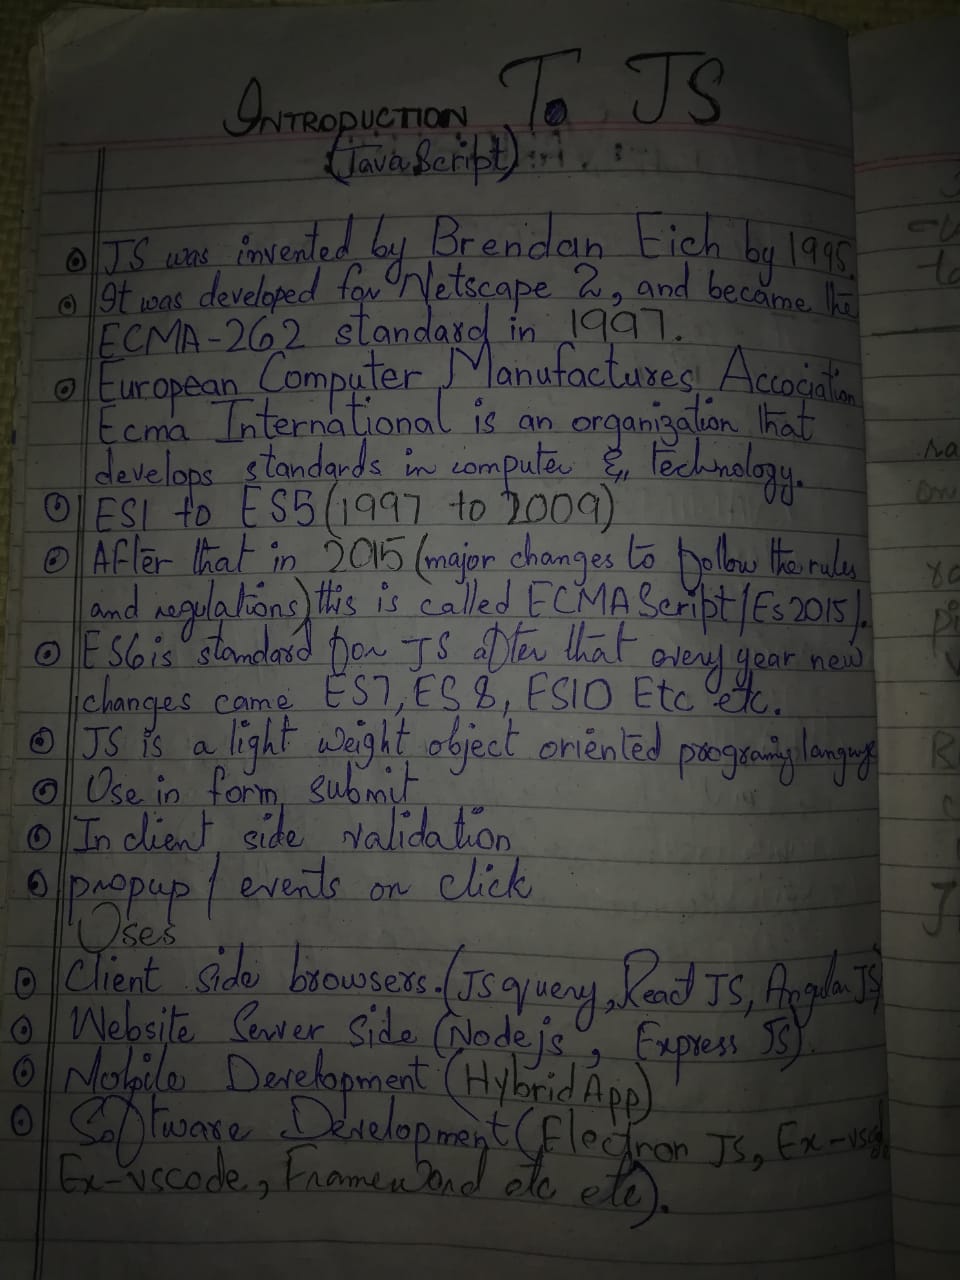 INTRODUCTION To JS
(JavaScript)
JS was invented by Brendan Eich by 1995.
It was developed for Netscape 2, and became the
ECMA-262 standard in 1997.
European Computer Manufactures Accociation
Ecma International is an organization that
develops standards in computer & technology.
ES1 to ES5 (1997 to 2009)
After that in 2015 (major changes to follow the rules
and regulations) this is called ECMAScript/Es2015).
ES6 is standard for JS after that every year new
changes came ES7, ES8, ES10 Etc etc.
JS is a light weight object oriented
Use in form submit
In client side validation
propup / events on click
Uses
Client side browsers. (JS query, React JS, Angular JS)
Website Server Side (Nodejs, Express JS).
Mobile Development (Hybrid App)
Software Development (Electron JS,
Ex-vscode, etc etc).